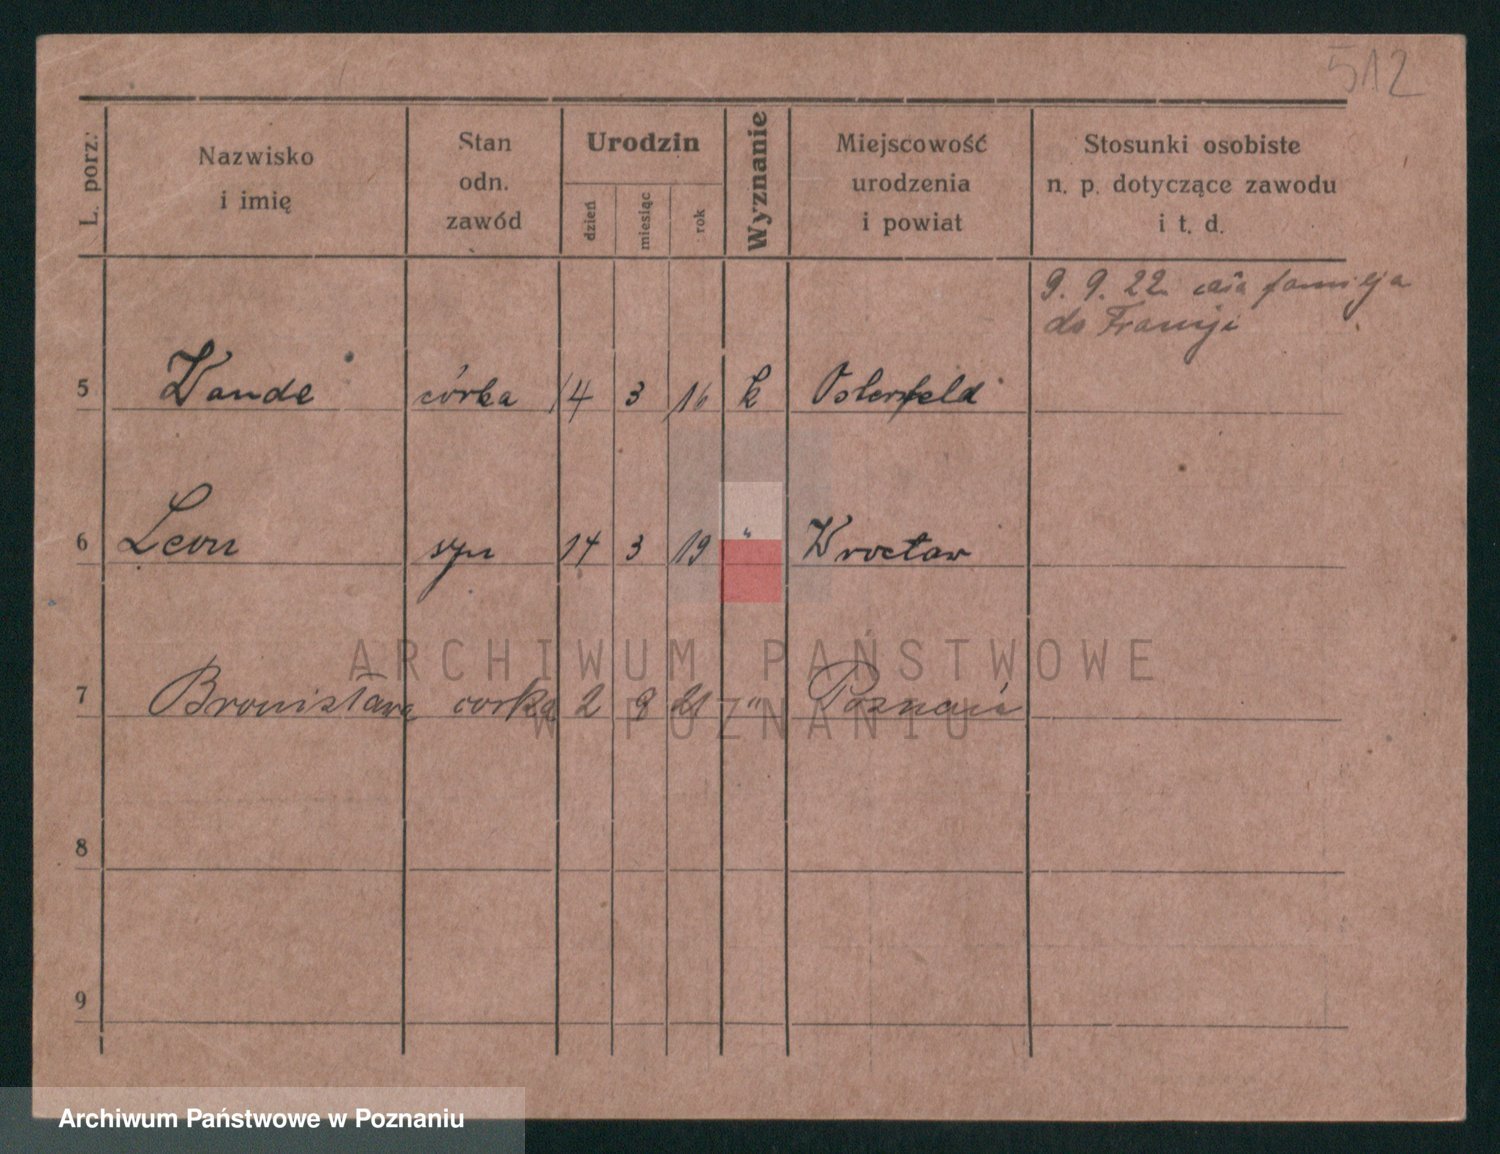 512
L. porz.
Nazwisko
i imię
Stan
odn.
zawód
Urodzin
dzień
miesiąc
rok
Wyznanie
Miejscowość
urodzenia
i powiat
Stosunki osobiste
n. p. dotyczące zawodu
i t. d.
9. 9. 22. cała familja
do Francji
5 Wanda córka 14 3 16 k Osterfeld
6 Leon syn 14 3 19 " Wrocław
ARCHIWUM PAŃSTWOWE
7 Bronisława corka 2 9 21 " Poznań
W POZNANIU
8
9
Archiwum Państwowe w Poznaniu